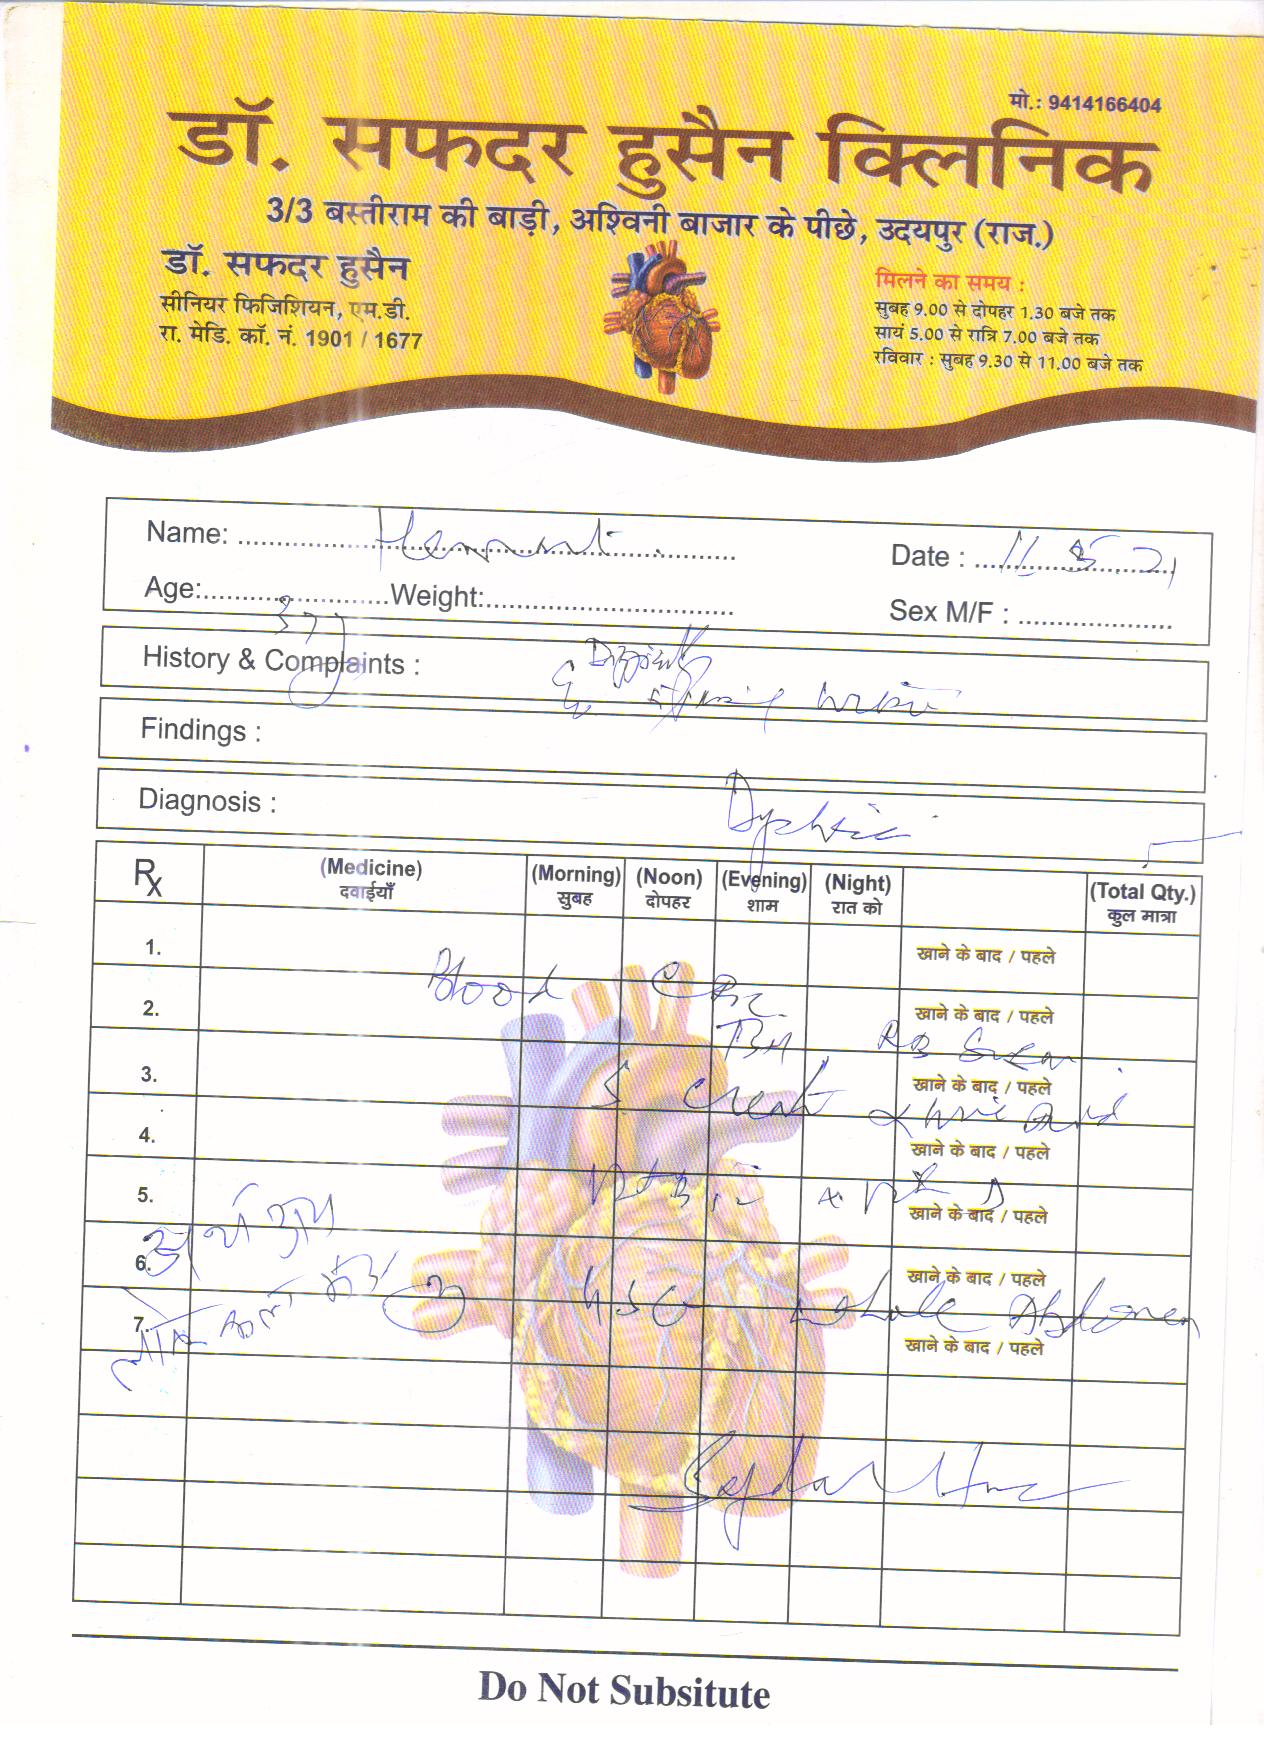 मो.: 9414166404
डॉ. सफदर हुसैन क्लिनिक
3/3 बस्तीराम की बाड़ी, अश्विनी बाजार के पीछे, उदयपुर (राज.)
डॉ. सफदर हुसैन
सीनियर फिजिशियन, एम.डी.
रा. मेडि. कॉ. नं. 1901 / 1677
मिलने का समय :
सुबह 9.00 से दोपहर 1.30 बजे तक
सायं 5.00 से रात्रि 7.00 बजे तक
रविवार : सुबह 9.30 से 11.00 बजे तक
Name: Hemant Date : 11 5 21
Age: Weight: Sex M/F :
History & Complaints :
Findings :
Diagnosis :
Rx (Medicine) (Morning) (Noon) (Evening) (Night) (Total Qty.)
दवाईयाँ सुबह दोपहर शाम रात को कुल मात्रा
1. खाने के बाद / पहले
Blood CBC
2. खाने के बाद / पहले
RB Sugar
3. खाने के बाद / पहले
S Creat Uric Acid
4. खाने के बाद / पहले
5. खाने के बाद / पहले
6. खाने के बाद / पहले
USG whole Abdomen
7. खाने के बाद / पहले
Do Not Subsitute